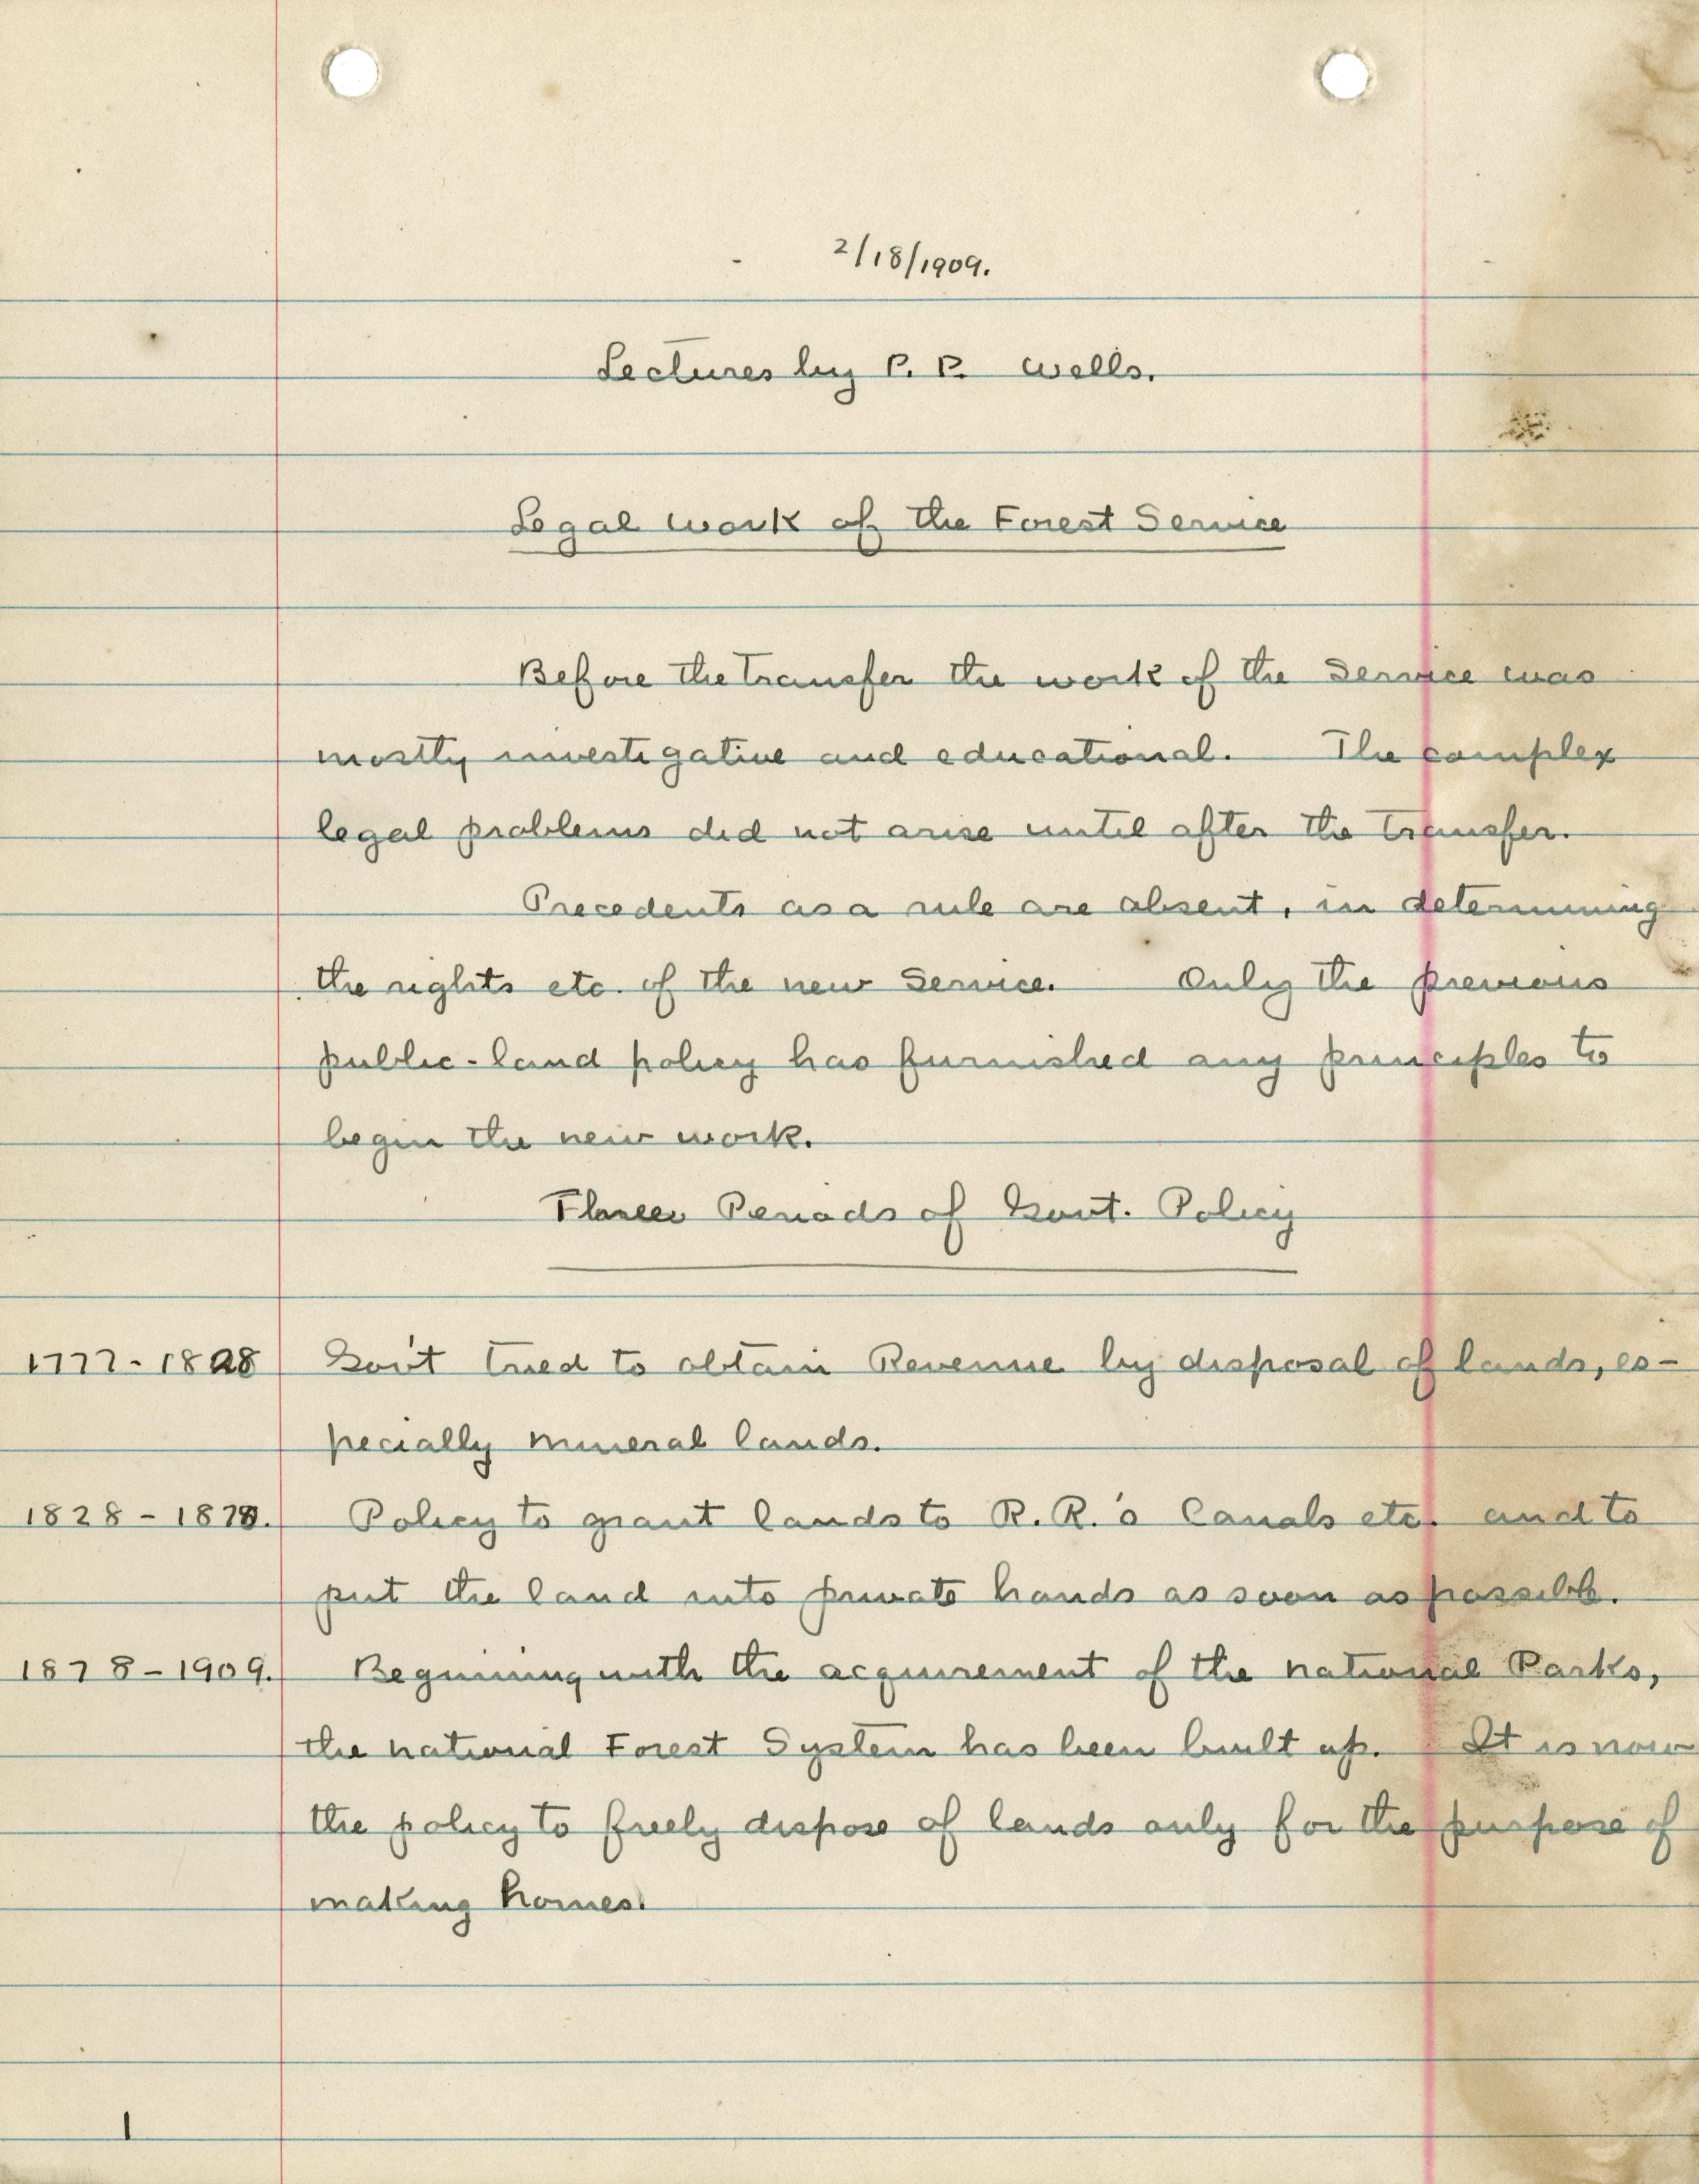 2/18/1909.
Lectures by P. P. Wells.
Legal work of the Forest Service
Before the transfer the work of the Service was
mostly investigative and educational. The complex
legal problems did not arise until after the transfer.
Precedents as a rule are absent, in determining
the rights etc. of the new Service. Only the previous
public-land policy has furnished any principles to
begin the new work.
Three Periods of Govt. Policy
1777-1828 Gov't tried to obtain Revenue by disposal of lands, es-
pecially mineral lands.
1828-1878. Policy to grant lands to R.R.'s Canals etc. and to
put the land into private hands as soon as possible.
1878-1909. Beginning with the acquirement of the national Parks,
the national Forest System has been built up. It is now
the policy to freely dispose of lands only for the purpose of
making homes.
1